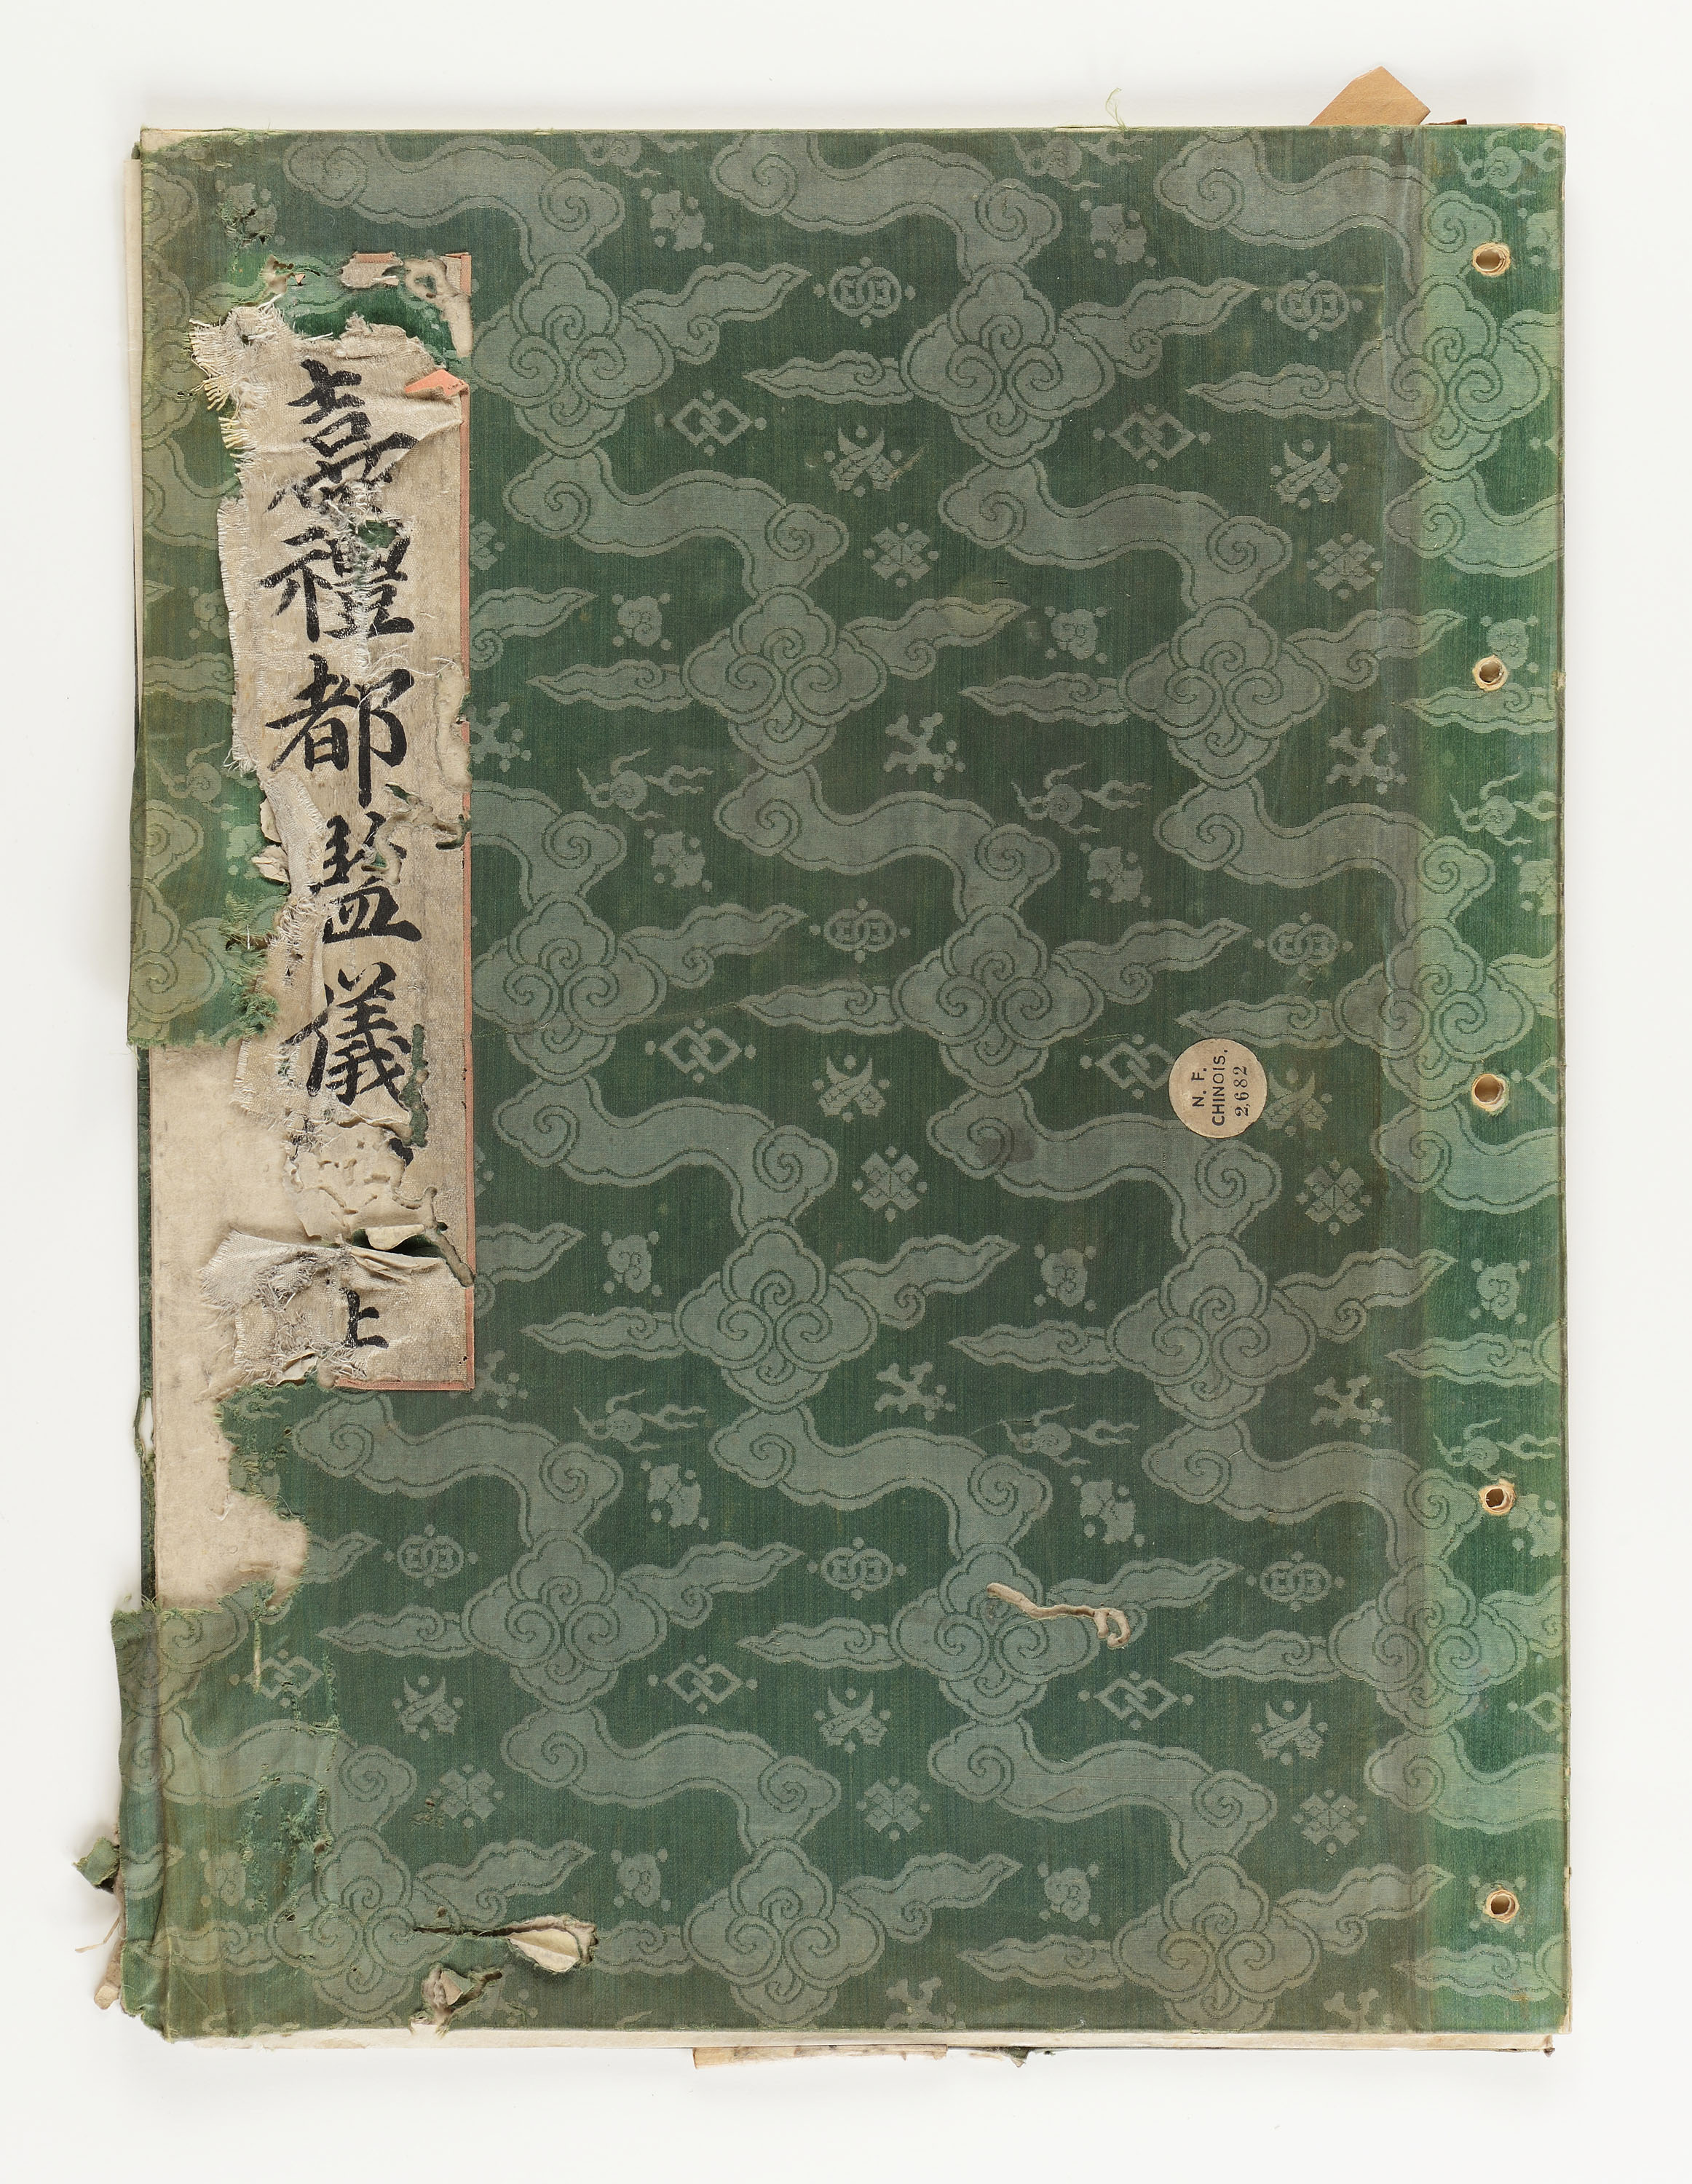 嘉禮都監儀 上
N. F.
CHINOIS.
2682